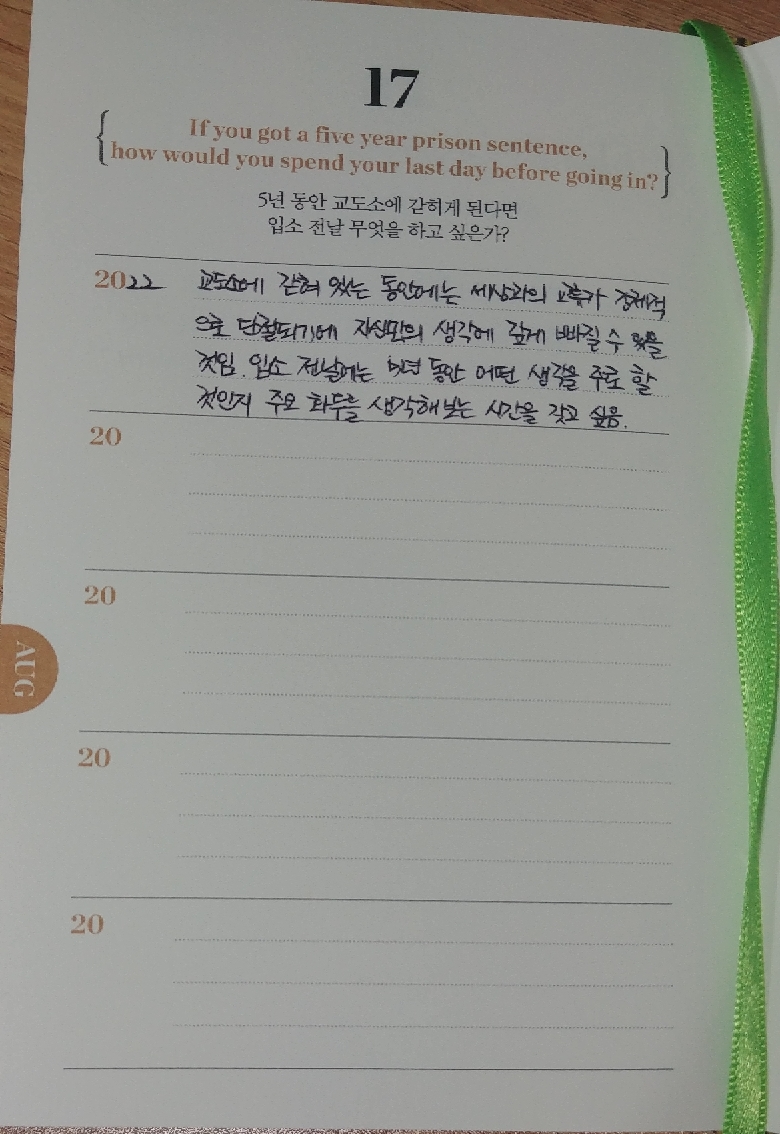 17
If you got a five year prison sentence,
how would you spend your last day before going in?
5년 동안 교도소에 갇히게 된다면
입소 전날 무엇을 하고 싶은가?
2022 교도소에 갇혀 있는 동안에는 세상과의 교류가 강제적
으로 단절되기에 자신만의 생각에 깊게 빠질 수 있을
것임. 입소 전날에는 5년 동안 어떤 생각을 주로 할
것인지 주요 화두를 생각해보는 시간을 갖고 싶음.
20
20
AUG
20
20